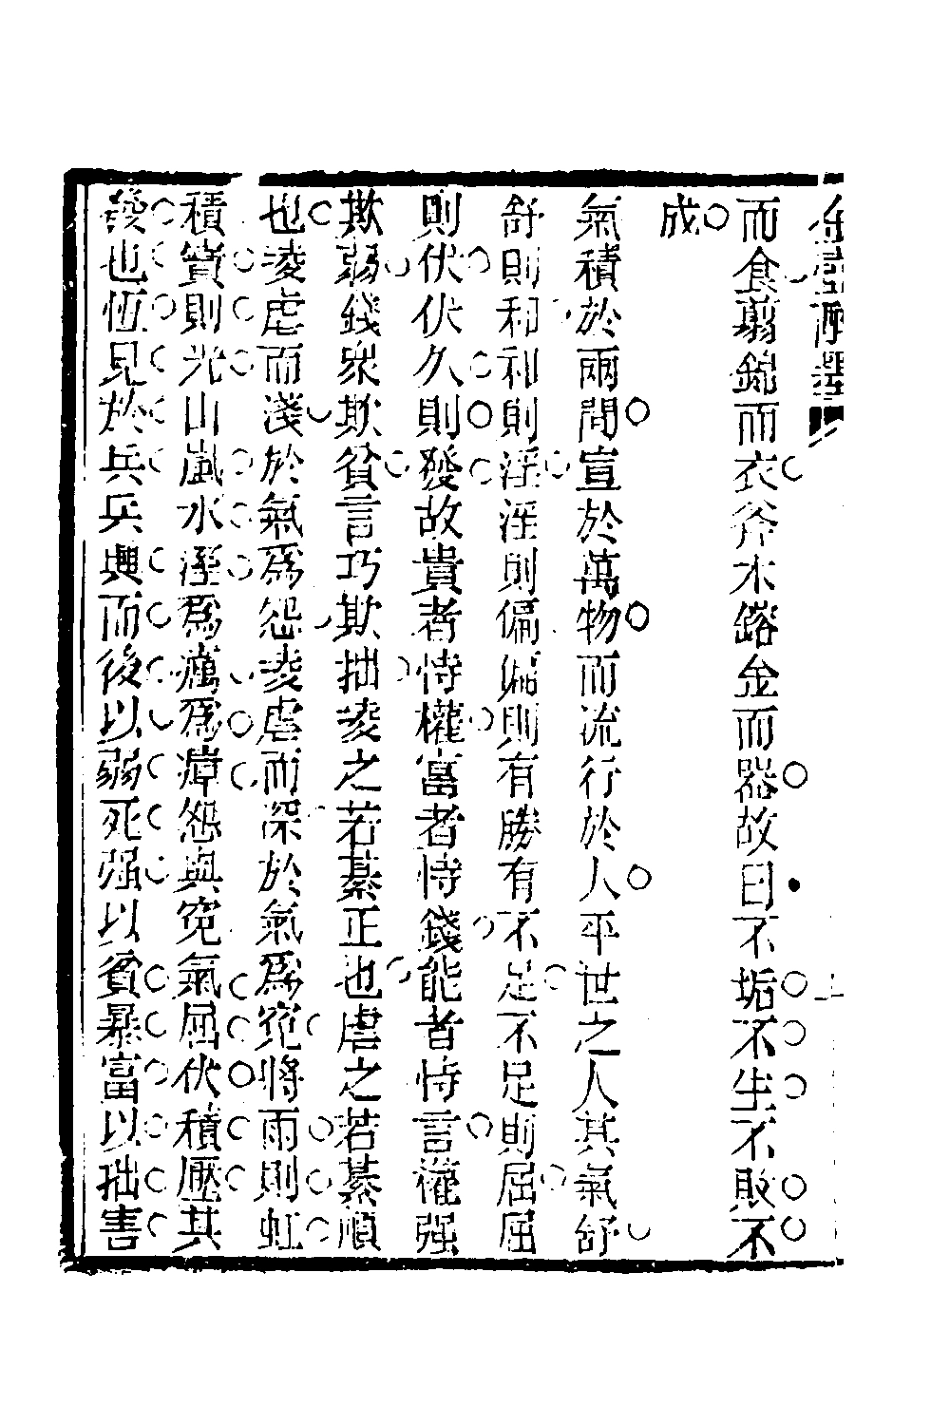 而食剪錦而衣斧木鎔金而器故曰不垢不生不敗不
成
氣積於兩間宣於萬物而流行於人平世之人其氣舒
舒則和和則淫淫則偏偏則有勝有不足不足則屈屈
則伏伏久則發故貴者恃權富者恃錢能者恃言權强
欺弱錢衆欺貧言巧欺拙凌之若綦正也虐之若綦順
也凌虐而淺於氣爲怨凌虐而深於氣爲寃將雨則虹
積寶則光山嵐水溼爲癘爲瘴怨與寃氣屈伏積壓其
發也恆見於兵兵興而後以弱死强以貧暴富以拙害